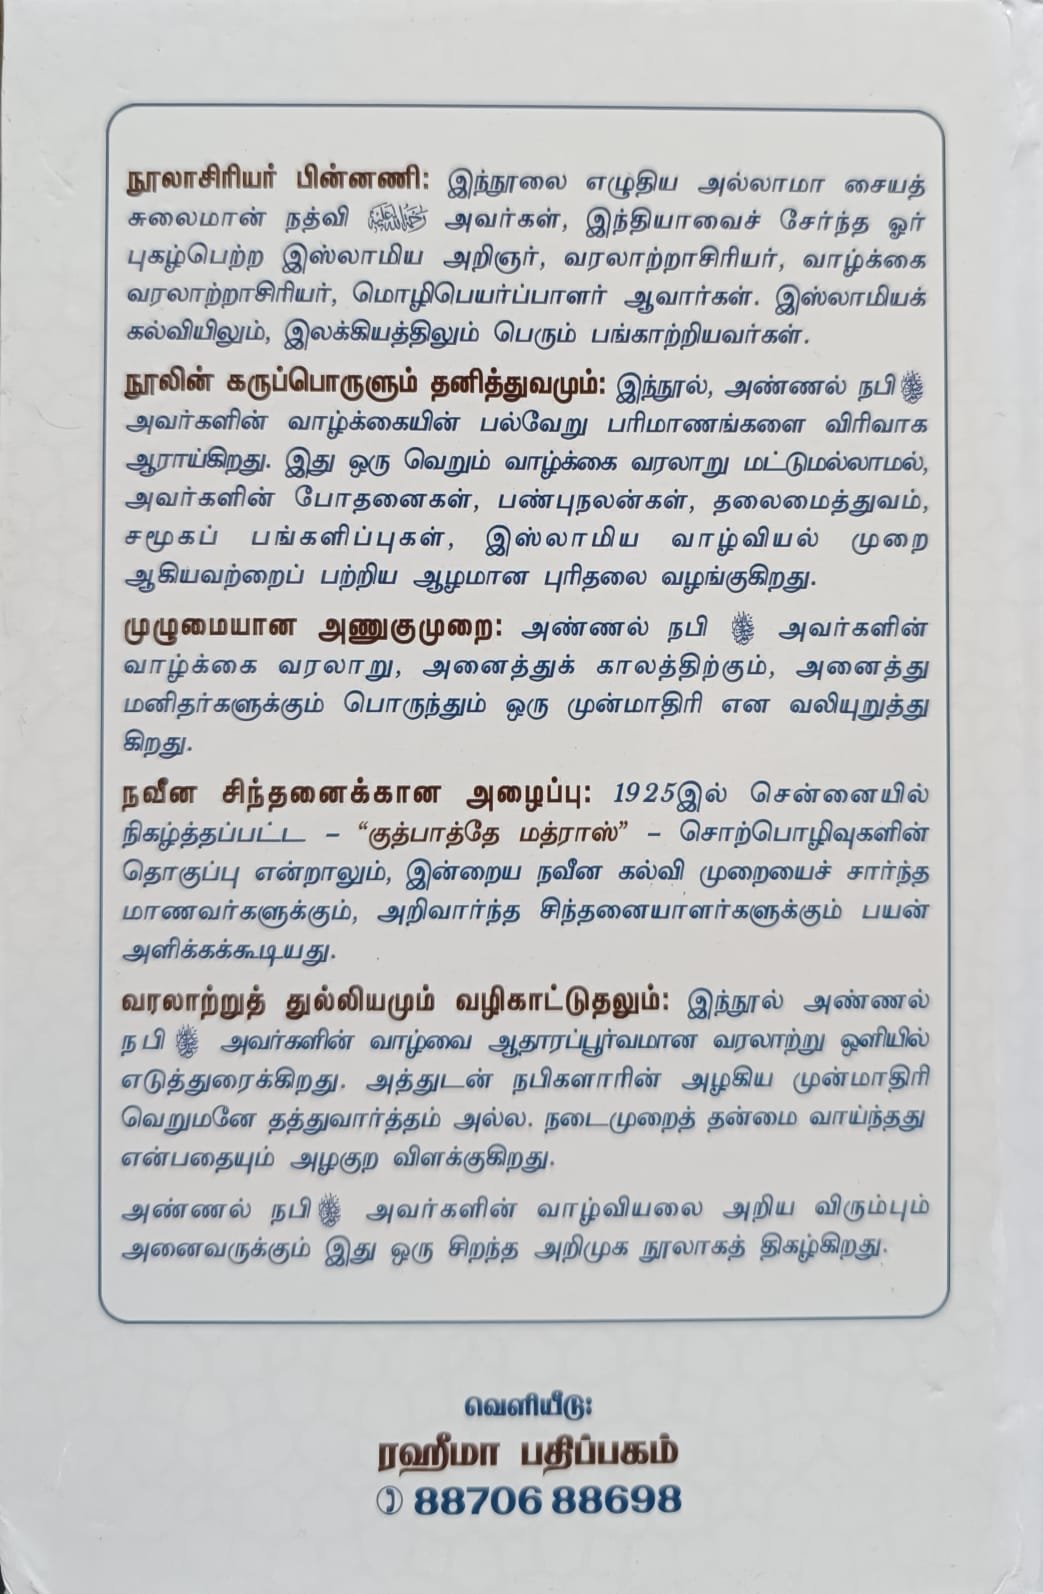 நூலாசிரியர் பின்னணி: இந்நூலை எழுதிய அல்லாமா சையத்
சுலைமான் நத்வி அவர்கள், இந்தியாவைச் சேர்ந்த ஓர்
புகழ்பெற்ற இஸ்லாமிய அறிஞர், வரலாற்றாசிரியர், வாழ்க்கை
வரலாற்றாசிரியர், மொழிபெயர்ப்பாளர் ஆவார்கள். இஸ்லாமியக்
கல்வியிலும், இலக்கியத்திலும் பெரும் பங்காற்றியவர்கள்.
நூலின் கருப்பொருளும் தனித்துவமும்: இந்நூல், அண்ணல் நபி ﷺ
அவர்களின் வாழ்க்கையின் பல்வேறு பரிமாணங்களை விரிவாக
ஆராய்கிறது. இது ஒரு வெறும் வாழ்க்கை வரலாறு மட்டுமல்லாமல்,
அவர்களின் போதனைகள், பண்புநலன்கள், தலைமைத்துவம்,
சமூகப் பங்களிப்புகள், இஸ்லாமிய வாழ்வியல் முறை
ஆகியவற்றைப் பற்றிய ஆழமான புரிதலை வழங்குகிறது.
முழுமையான அணுகுமுறை: அண்ணல் நபி ﷺ அவர்களின்
வாழ்க்கை வரலாறு, அனைத்துக் காலத்திற்கும், அனைத்து
மனிதர்களுக்கும் பொருந்தும் ஒரு முன்மாதிரி என வலியுறுத்து
கிறது.
நவீன சிந்தனைக்கான அழைப்பு: 1925இல் சென்னையில்
நிகழ்த்தப்பட்ட – “குத்பாத்தே மத்ராஸ்” – சொற்பொழிவுகளின்
தொகுப்பு என்றாலும், இன்றைய நவீன கல்வி முறையைச் சார்ந்த
மாணவர்களுக்கும், அறிவார்ந்த சிந்தனையாளர்களுக்கும் பயன்
அளிக்கக்கூடியது.
வரலாற்றுத் துல்லியமும் வழிகாட்டுதலும்: இந்நூல் அண்ணல்
நபி ﷺ அவர்களின் வாழ்வை ஆதாரப்பூர்வமான வரலாற்று ஒளியில்
எடுத்துரைக்கிறது. அத்துடன் நபிகளாரின் அழகிய முன்மாதிரி
வெறுமனே தத்துவார்த்தம் அல்ல. நடைமுறைத் தன்மை வாய்ந்தது
என்பதையும் அழகுற விளக்குகிறது.
அண்ணல் நபி ﷺ அவர்களின் வாழ்வியலை அறிய விரும்பும்
அனைவருக்கும் இது ஒரு சிறந்த அறிமுக நூலாகத் திகழ்கிறது.
வெளியீடு:
ரஹீமா பதிப்பகம்
✆ 88706 88698